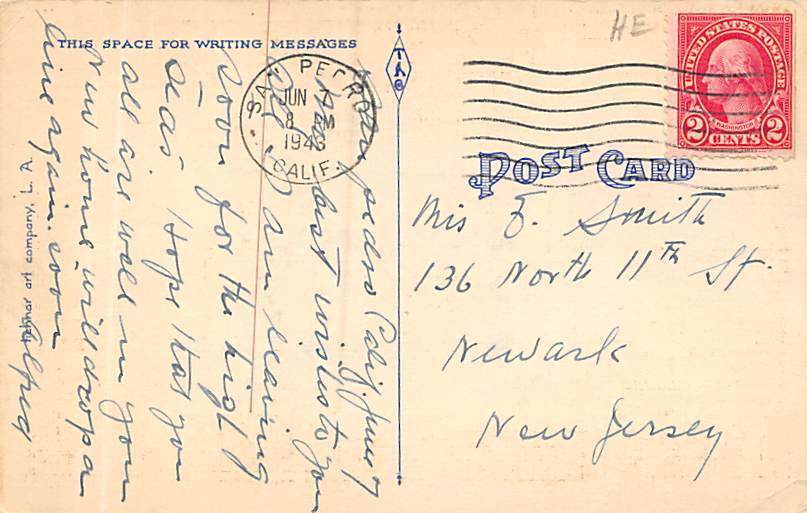 THIS SPACE FOR WRITING MESSAGES
San pedro Calif. June 7
The best wishes to you
all. I am leaving
soon for the high
seas Hope that you
all are well in your
new home will drop a
line again soon
Alfred
SAN PEDRO
JUN 7
8 PM
1943
CALIF.
HE
UNITED STATES POSTAGE
WASHINGTON
2 CENTS 2
POST CARD
Mis E. Smith
136 North 11th St.
Newark
New Jersey
art company, L. A.